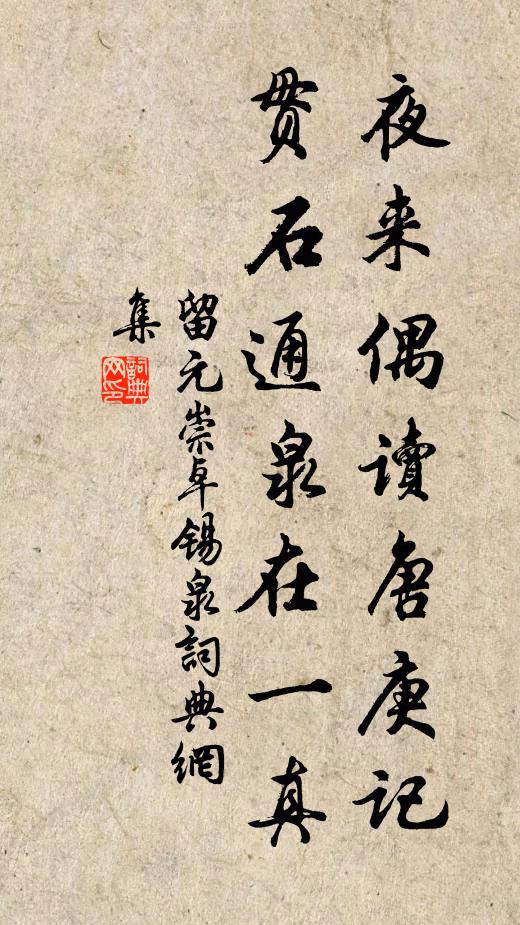 夜来偶讀唐庚記
贯石通泉在一真
留元崇卓锡泉詞典網
集
詞典
网印